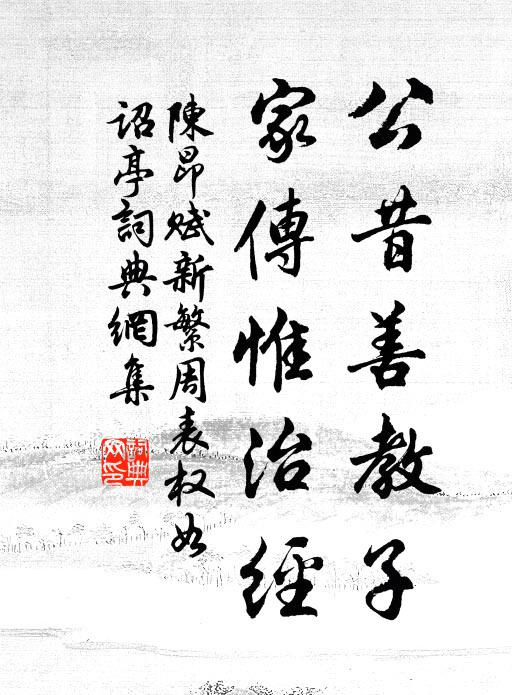 公昔善教子
家傳惟治經
陳昂賦新繁周表权如
詔亭詞典網集
詞典
网印